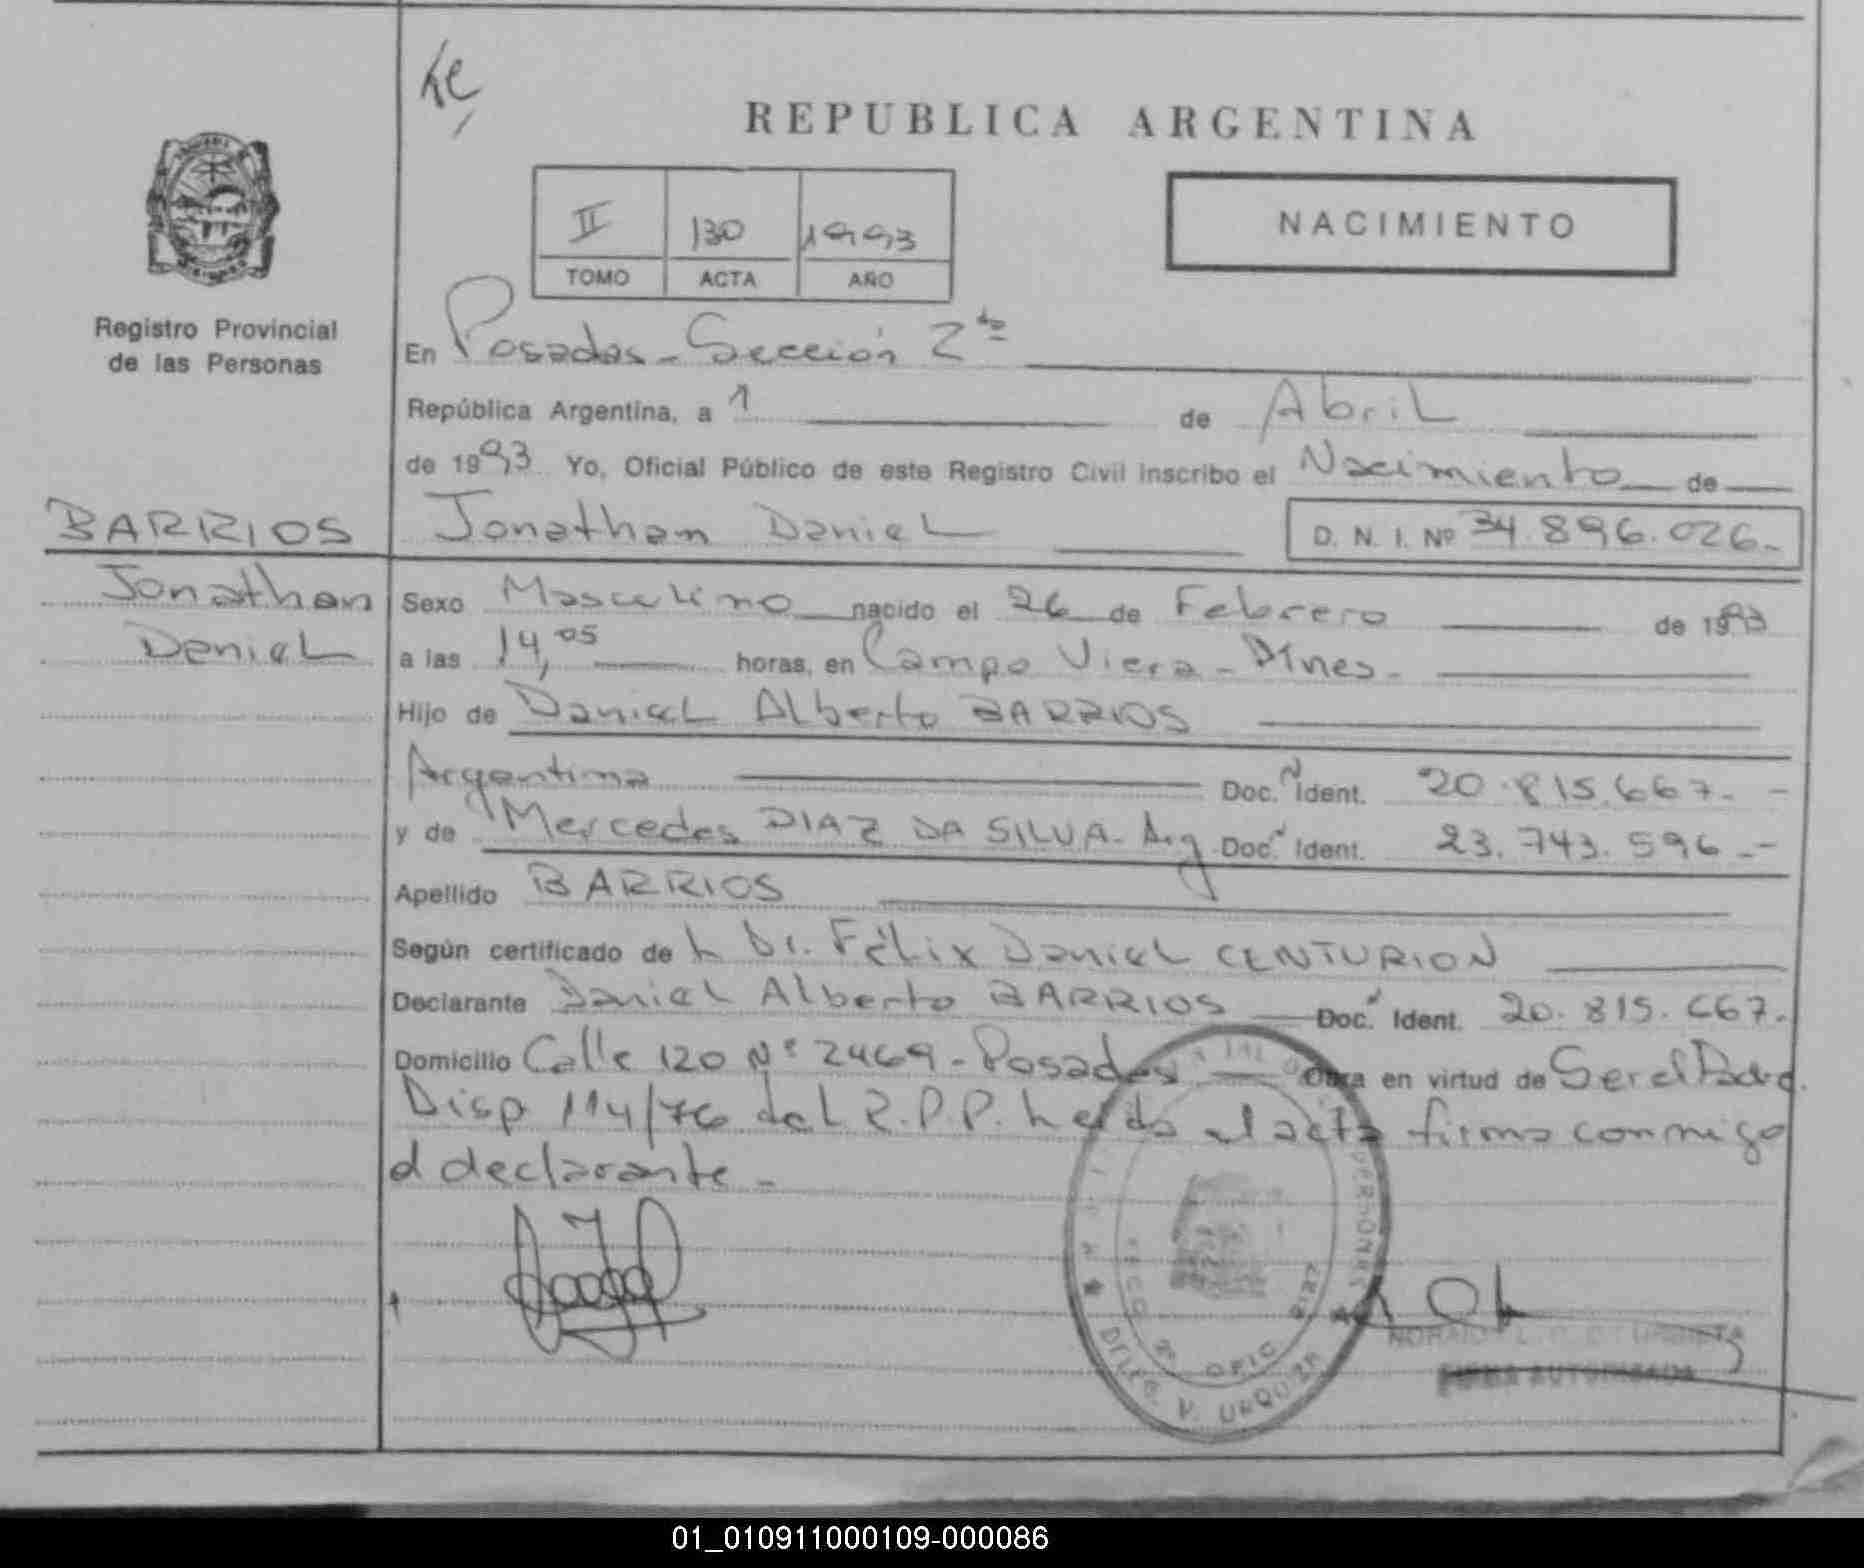 REPUBLICA ARGENTINA
II 130 1993
TOMO ACTA AÑO
NACIMIENTO
Registro Provincial
de las Personas
En Posadas - Sección 2da
República Argentina, a 1 de Abril
de 1993 Yo, Oficial Público de este Registro Civil inscribo el Nacimiento de
BARRIOS
Jonathan
Daniel
Jonathan Daniel D. N. I. Nº 34.896.026.-
Sexo Masculino nacido el 26 de Febrero de 1993
a las 14,05 horas, en Campo Viera - Mnes.
Hijo de Daniel Alberto BARRIOS
Argentina Doc. Ident. 20.815.667.-
y de Mercedes DIAZ DA SILVA - Arg Doc. Ident. 23.743.596.-
Apellido BARRIOS
Según certificado de L Dr. Félix Daniel CENTURION
Declarante Daniel Alberto BARRIOS Doc. Ident. 20.815.667.
Domicilio Calle 120 Nº 2469 - Posadas Obra en virtud de Ser el Padre.
Disp 114/76 del R.P.P. Leida el acta firma conmigo
el declarante -
PERSONAS
OFIC
V. URQUIZA
FIRMA AUTORIZADA
01_010911000109-000086